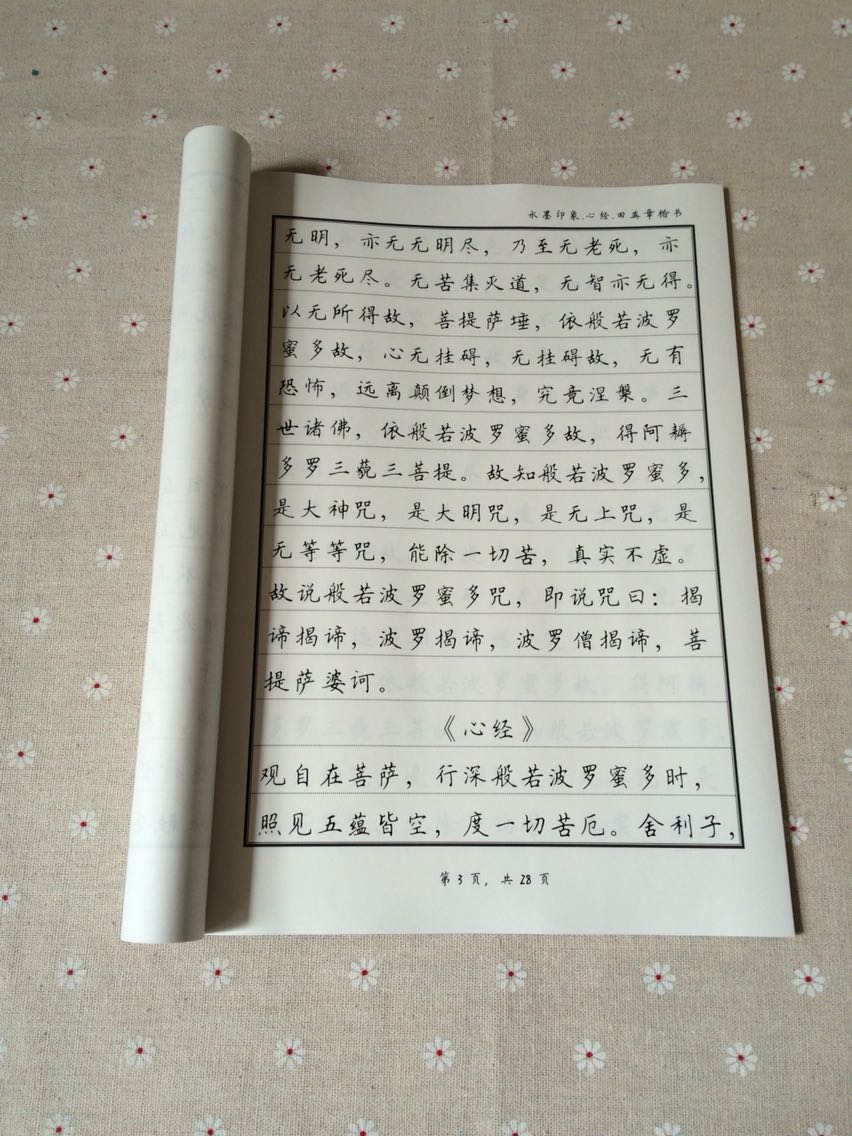 水墨印象.心经.田英章楷书
无明，亦无无明尽，乃至无老死，亦
无老死尽。无苦集灭道，无智亦无得。
以无所得故，菩提萨埵，依般若波罗
蜜多故，心无挂碍，无挂碍故，无有
恐怖，远离颠倒梦想，究竟涅槃。三
世诸佛，依般若波罗蜜多故，得阿耨
多罗三藐三菩提。故知般若波罗蜜多，
是大神咒，是大明咒，是无上咒，是
无等等咒，能除一切苦，真实不虚。
故说般若波罗蜜多咒，即说咒曰：揭
谛揭谛，波罗揭谛，波罗僧揭谛，菩
提萨婆诃。
《心经》
观自在菩萨，行深般若波罗蜜多时，
照见五蕴皆空，度一切苦厄。舍利子，
第3页，共28页